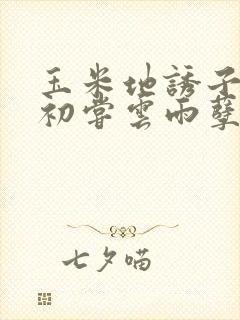 玉米地誘子
初嘗雲雨孽
七夕喵